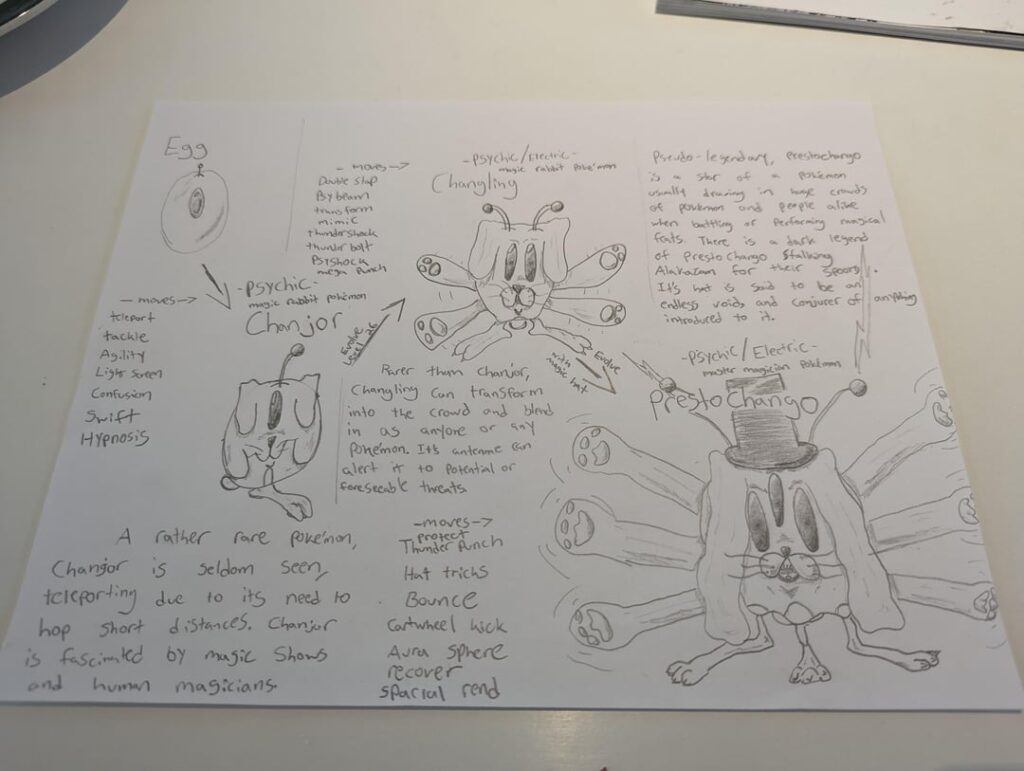 Egg
- moves ->
teleport
tackle
Agility
Light Screen
Confusion
Swift
Hypnosis
- Psychic -
magic rabbit pokémon
Chanjor
A rather rare pokémon,
Chanjor is seldom seen,
teleporting due to its need to
hop short distances. Chanjor
is fascinated by magic shows
and human magicians.
Evolve
Level 26
- moves ->
Double slap
Psybeam
transform
mimic
thundershock
thunder bolt
Psyshock
mega Punch
- Psychic/Electric -
magic rabbit poké'mon
Changling
Rarer than chanjor,
Changling can transform
into the crowd and blend
in as anyone or any
pokémon. It's antennae can
alert it to potential or
foreseeable threats.
Evolve
with
magic hat
- moves ->
protect
Thunder Punch
Hat tricks
Bounce
Cartwheel kick
Aura sphere
recover
spacial rend
Pseudo-legendary, prestochango
is a star of a pokémon
usually drawing in huge crowds
of pokémon and people alike
when battling or performing magical
feats. There is a dark legend
of PrestoChango Stalking
Alakazam for their spoons.
It's hat is said to be an
endless void, and conjurer of anything
introduced to it.
- Psychic/Electric -
master magician pokémon
PrestoChango